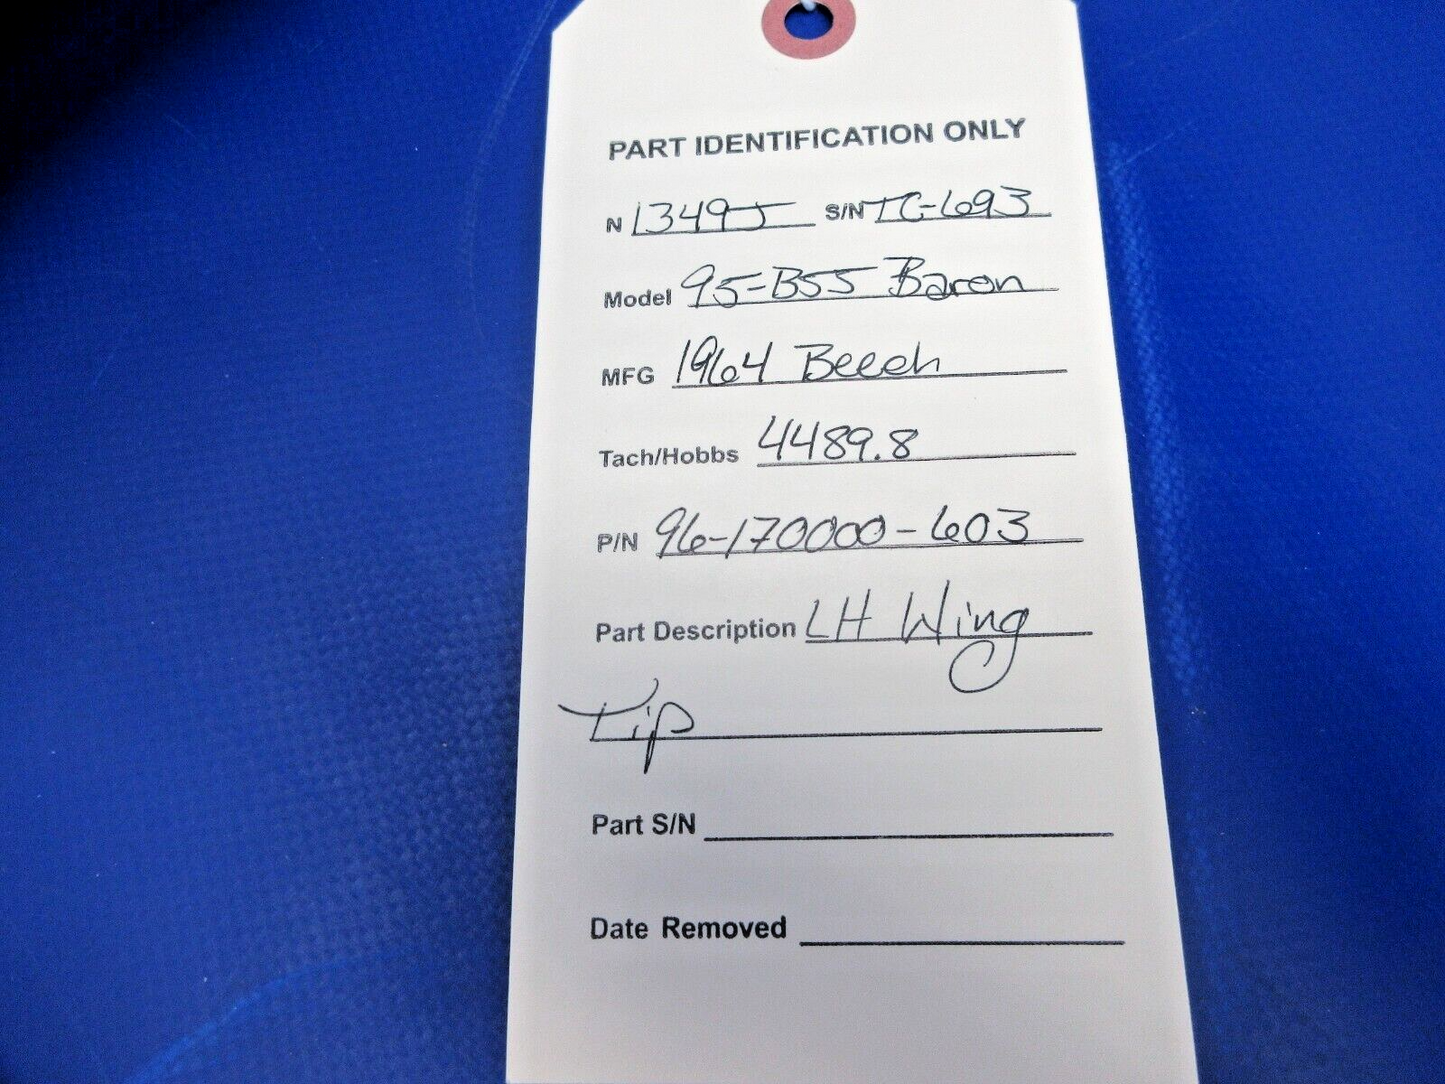 PART IDENTIFICATION ONLY
N 1349J S/N TC-693
Model 95-B55 Baron
MFG 1964 Beech
Tach/Hobbs 4489.8
P/N 96-170000-603
Part Description LH Wing
Tip
Part S/N
Date Removed